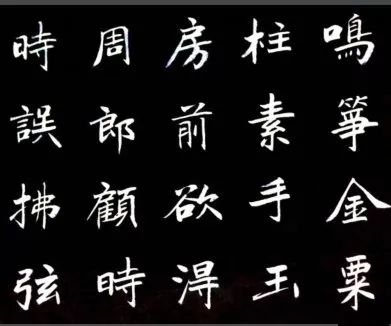 鳴箏金粟
柱素手玉
房前欲淂
周郎顧時
時誤拂弦